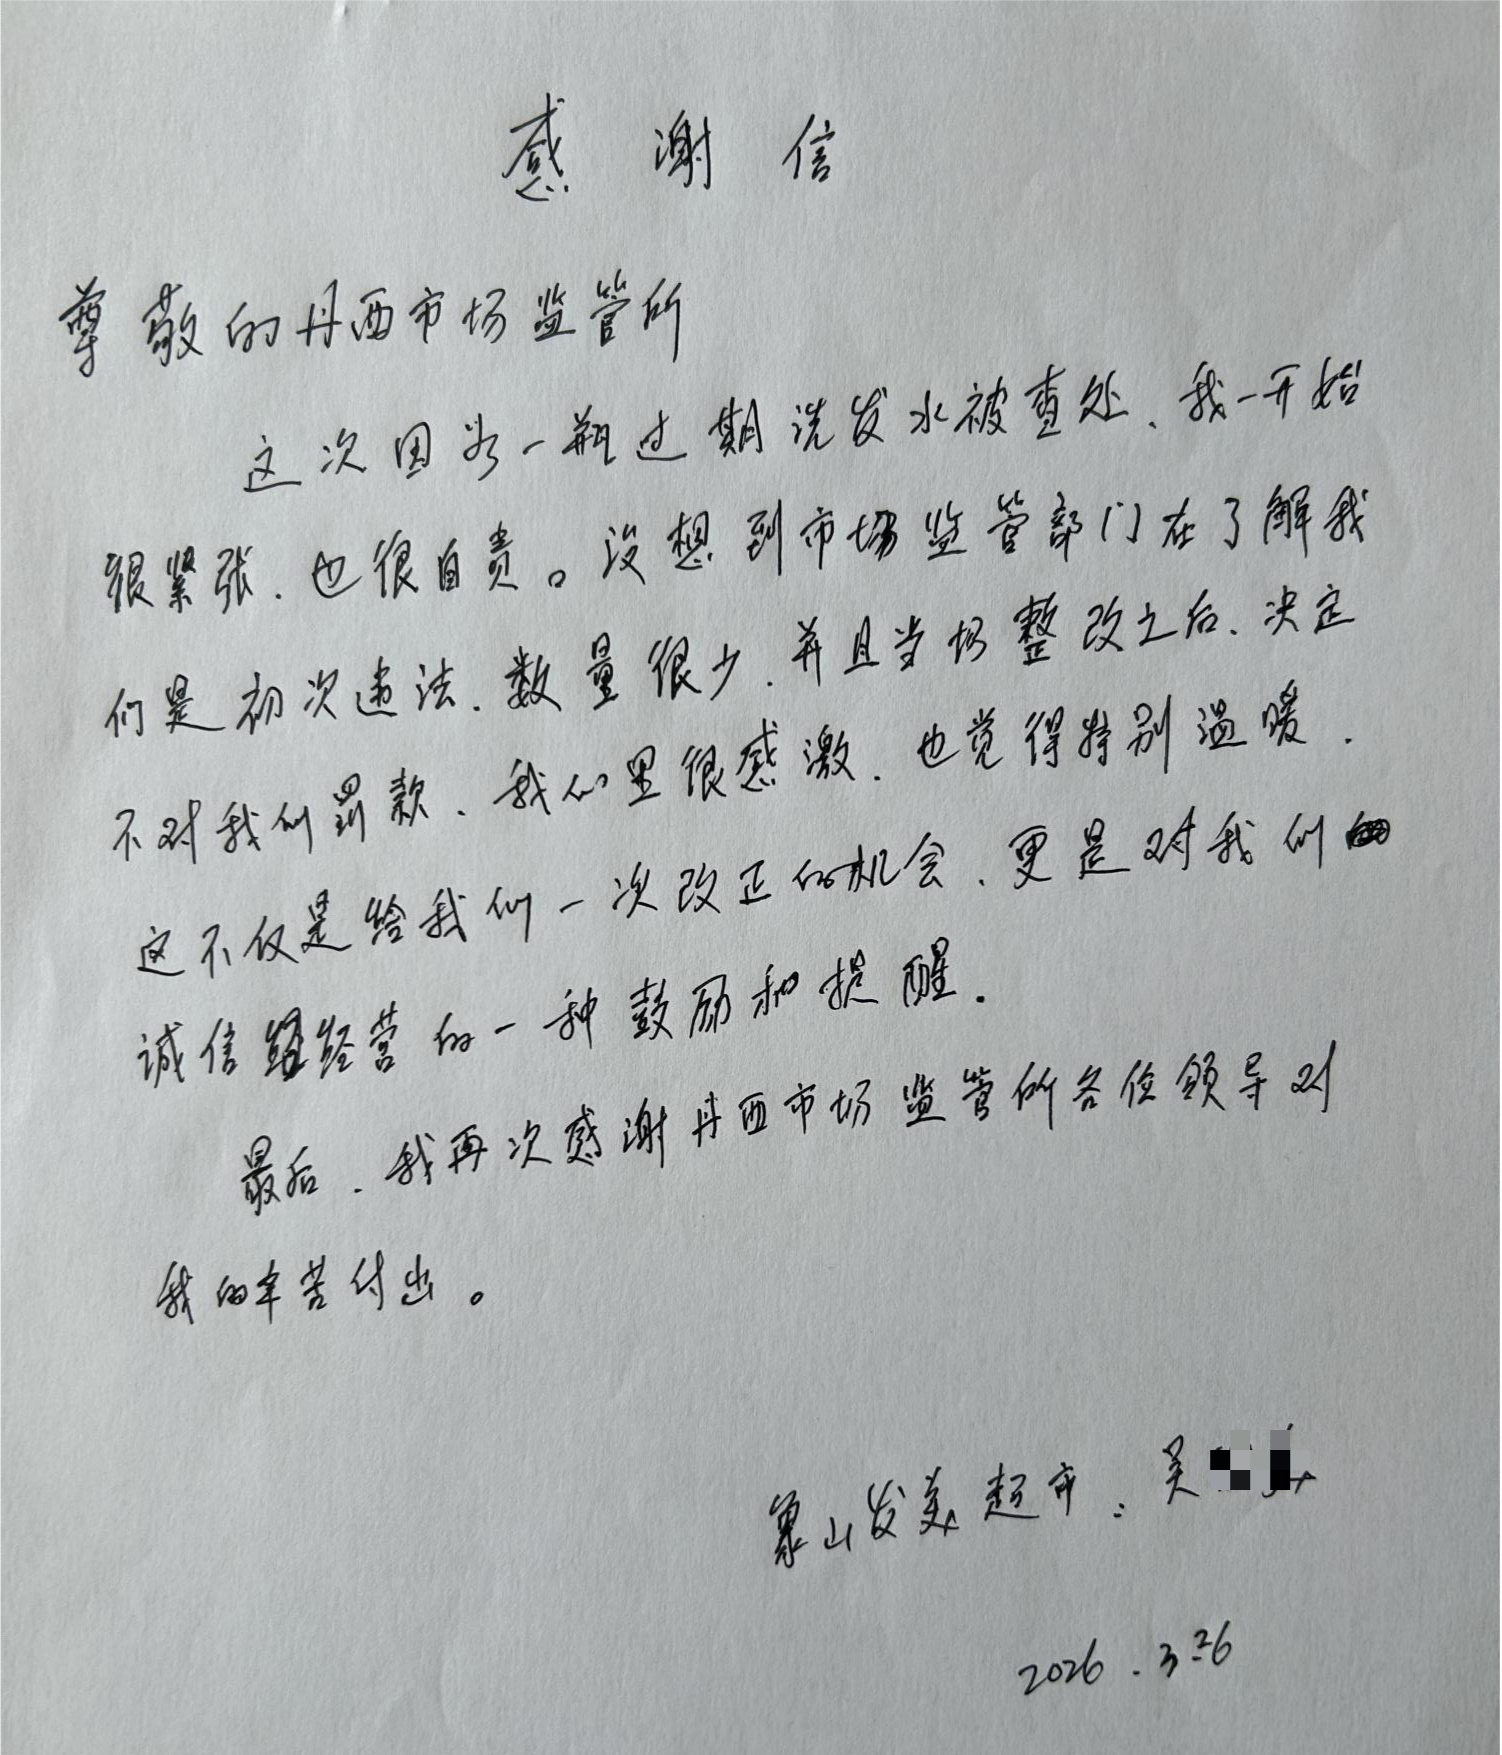 感谢信
尊敬的丹西市场监管所
这次因为一瓶过期洗发水被查处、我一开始
很紧张、也很自责。没想到市场监管部门在了解我
们是初次违法、数量很少、并且当场整改之后、决定
不对我们罚款、我们里很感激、也觉得特别温暖.
这不仅是给我们一次改正的机会、更是对我们
诚信经营的一种鼓励和提醒.
最后、我再次感谢丹西市场监管所各位领导对
我的辛苦付出。
象山发美超市:吴
2026.3.26